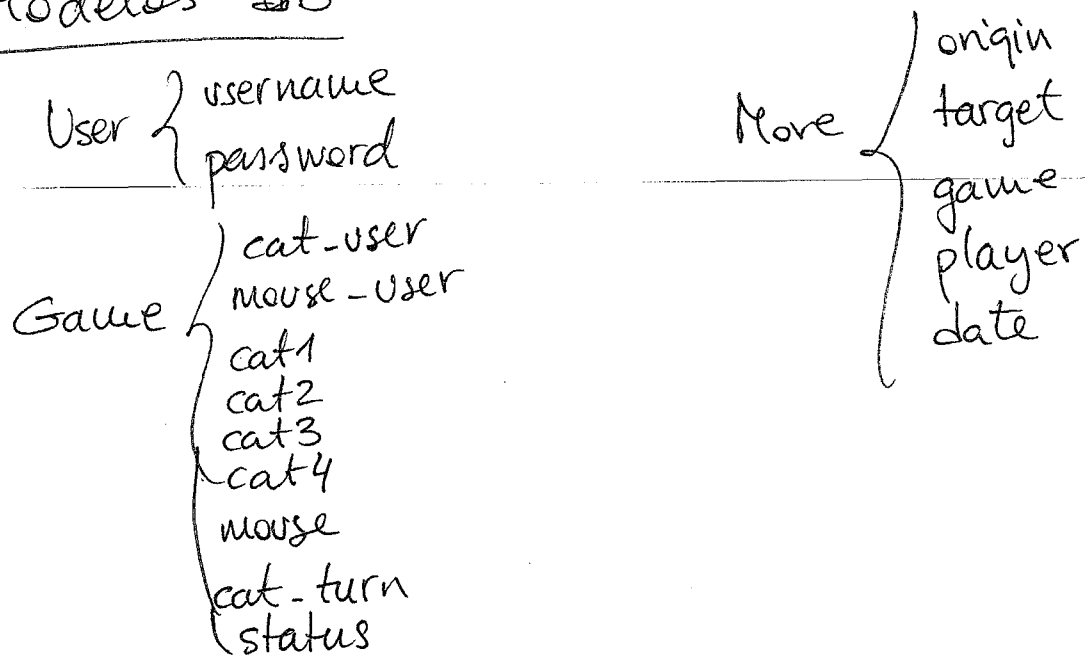 Modelos DB
User
username
password
Game
cat-user
mouse-user
cat1
cat2
cat3
cat4
mouse
cat-turn
status
Move
origin
target
game
player
date